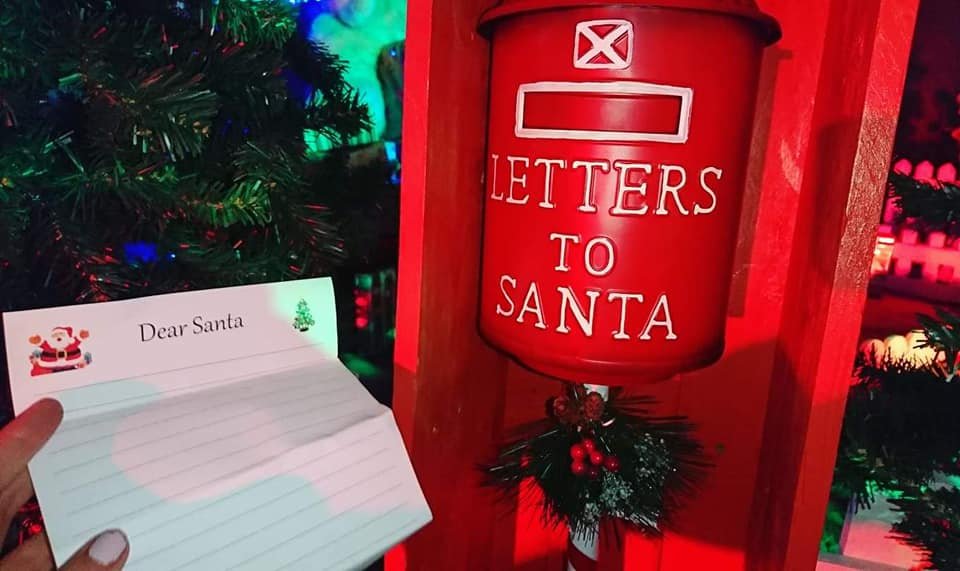 Dear Santa
LETTERS
TO
SANTA